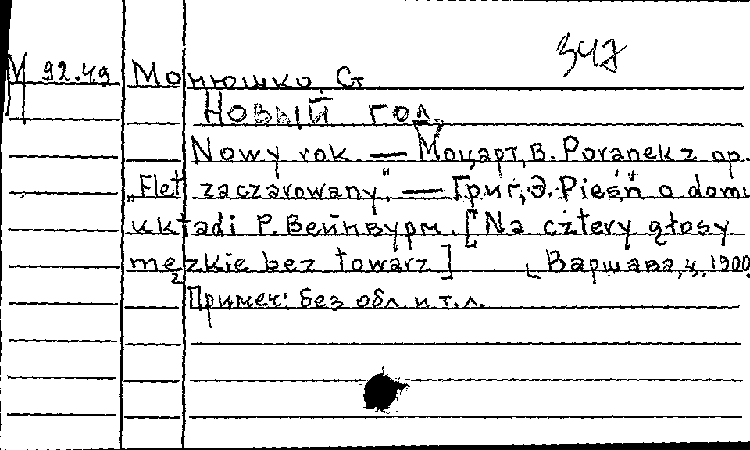 347
М 92.49 Монюшко, С
Новый год.
Nowy rok. — Моцарт, В. Poranek z op.
„Flet zaczarowany". — Григ, Э. Pieśń o domu
układi Р. Вейнвурм. [Na cztery głosy
męzkie bez towarz]
[Варшава, ц. 1900
Примеч: без обл и т.л.